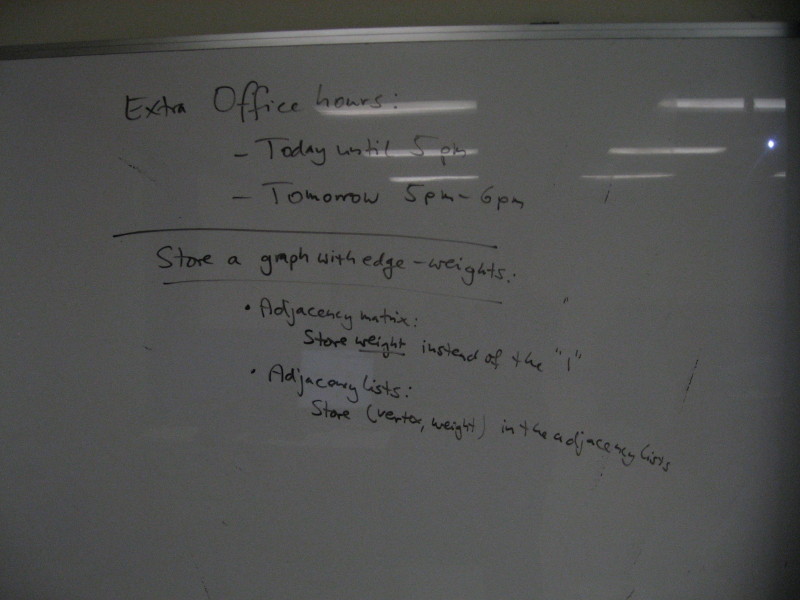 Extra Office hours:
- Today until 5 pm
- Tomorrow 5pm - 6pm
Store a graph with edge-weights:
• Adjacency matrix:
Store weight instead of the "1"
• Adjacency lists:
Store (vertex, weight) in the adjacency lists